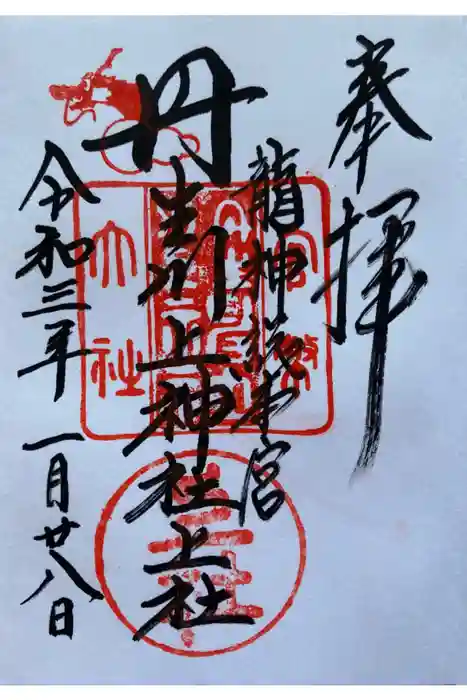 奉拝
龍神総本宮
丹生川上神社上社
令和三年一月廿八日